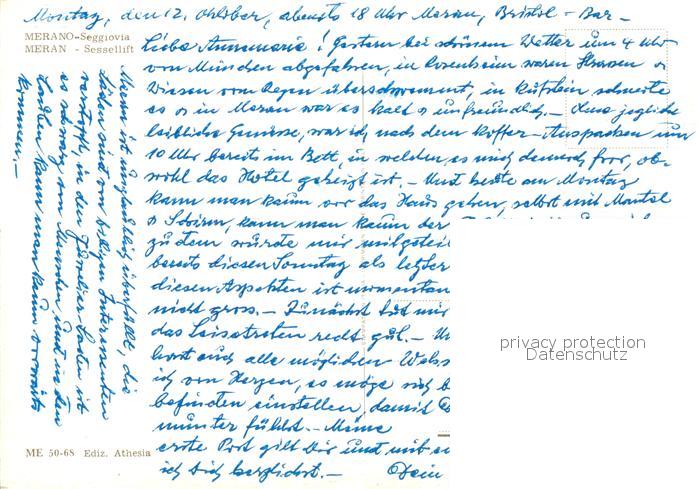 Montag, den 12. Oktober, abends 18 Uhr Meran, Bristol - Bar -
MERANO-Seggiovia
MERAN - Sessellift
Liebe Annemarie! Gestern bei schönem Wetter um 4 Uhr
von München abgefahren, in Rosenheim waren Strassen &
Wiesen vom Regen überschwemmt, in Kufstein schneite
es & in Meran war es kalt & unfreundlich. - Ohne jegliche
leibliche Genüsse, war ich nach dem Koffer-Auspacken um
10 Uhr bereits im Bett, in welchem es mich dennoch fror, ob-
wohl das Hotel geheizt ist. - Und heute am Montag
kann man kaum vor das Haus gehen, selbst mit Mantel
& Schirm, kann man kaum der
zudem würde mir mitgeteil
bereits diesen Sonntag als letzter
diesen Aspekten ist momentan
nicht gross. - Zunächst tut mir
das Leisetreten recht gut. -
hort auf alle möglichen
ich von Herzen, es möge sich b
befinden einstellen, damit
munter fühlst. - Meine
erste Post gilt Dir und mit
ich Dich herzlichst. - Dein
Meran ist unglaublich überfüllt, die
Läden sind von billigen Interessenten
verstopft, in den Juwelier-Laden ist
es schwarz von Menschen und in den
Lauben kann man kaum vorwärts
kommen. -
ME 50-68 Ediz. Athesia
privacy protection
Datenschutz